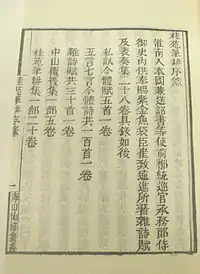 桂苑筆耕序
淮南入本國兼送詔書等使前都統巡官承務郎侍
御史內供奉賜紫金魚袋臣崔致遠進所著雜詩賦
及表奏集二十八卷具錄如後
私試今體賦五首一卷
五言七言今體詩共一百首一卷
雜詩賦共三十首一卷
中山覆簣集一部五卷
桂苑筆耕集一部二十卷
桂苑筆耕序
一
海山仙館叢書